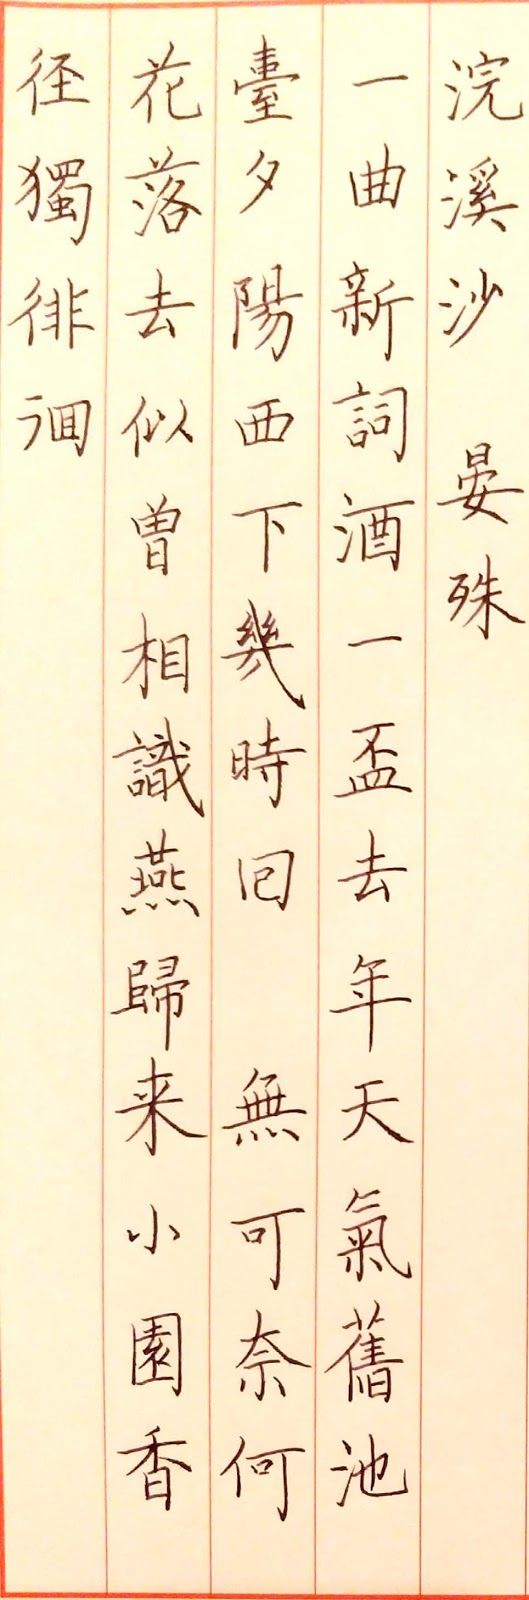 浣溪沙 晏殊
一曲新詞酒一盃去年天氣舊池
臺夕陽西下幾時回 無可奈何
花落去似曾相識燕歸来小園香
径獨徘徊